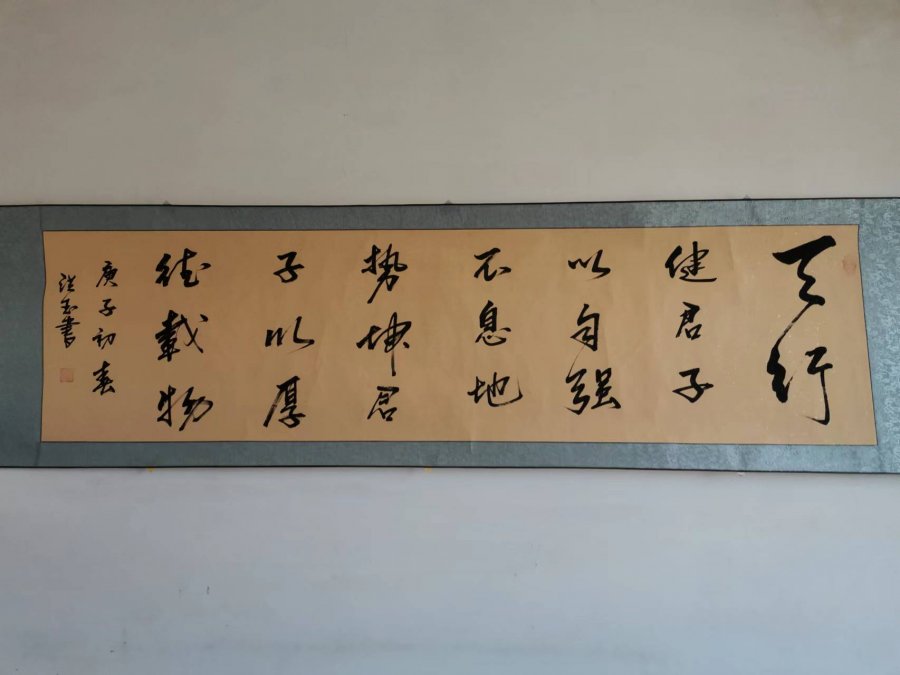 天行
健君子
以自强
不息地
势坤君
子以厚
德载物
庚子初春
书